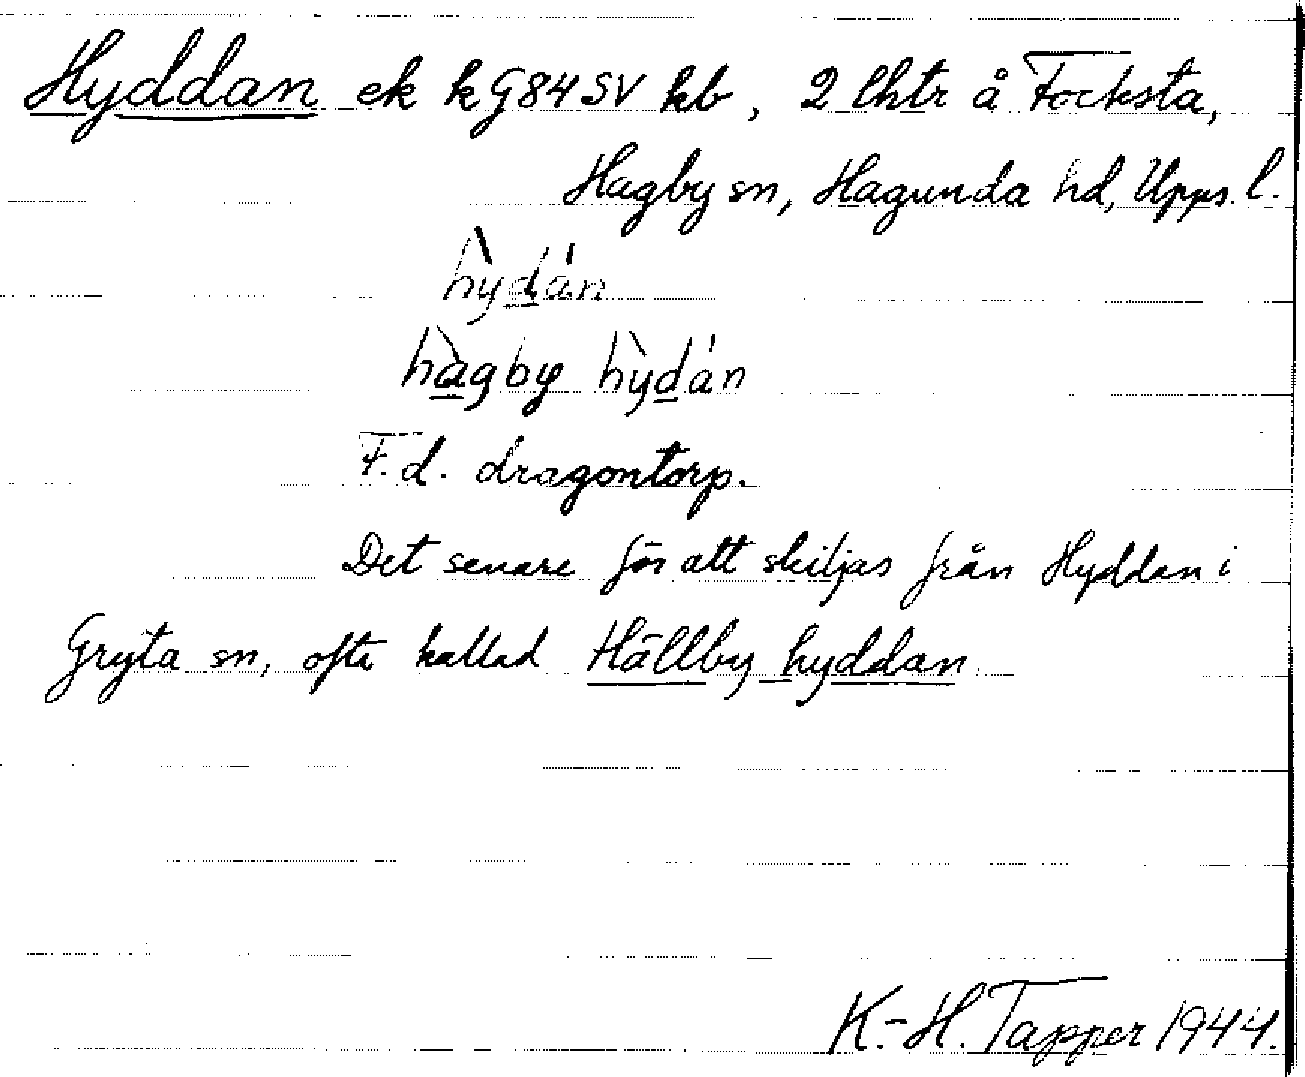 Hyddan ek kG84SV kb, 2 lhtr å Focksta,
Hagby sn, Hagunda hd, Upps. l.
hỳdán
hàgby hỳdán
F.d. dragontorp.
Det senare för att skiljas från Hyddan i
Gryta sn, ofta kallad Hällby hyddan.
K.-H. Tapper 1944.